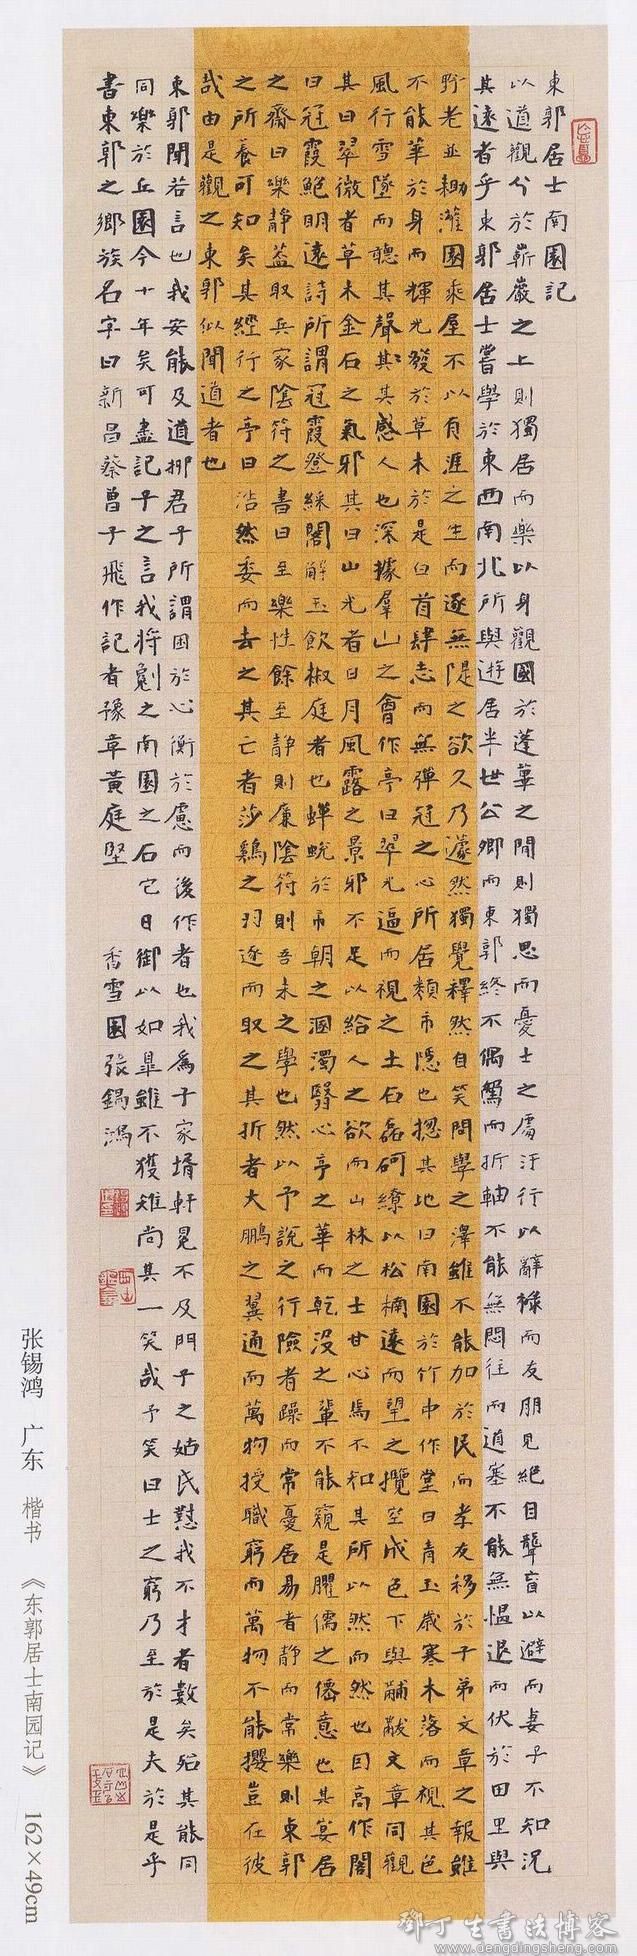 東郭居士南園記
以道觀分於嶄巖之上則獨居而樂以身觀國於蓬蓽之間則獨思而憂士之處汙行以辭祿而友朋見絕自聾盲以避而妻子不知況
其遠者乎東郭居士嘗學於東西南北所與遊居半世公卿而東郭終不偶駕而折軸不能無悶往而道塞不能無慍退而伏於田里與
野老並耡灌園乘屋不以有涯之生而逐無隄之欲久乃蘧然獨覺釋然自笑問學之澤雖不能加於民而孝友移於子弟文章之報雖
不能華於身而輝光發於草木於是白首肆志而無彈冠之心所居類市隱也摠其地曰南園於竹中作堂曰青玉歲寒木落而視其色
風行雪墜而聽其聲其感人也深據羣山之會作亭曰翠光逼而視之土石磊砢繚以松楠遠而望之攬空成色下與黼黻文章同觀
其曰翠微者草木金石之氣邪其曰山光者日月風露之景邪不足以給人之欲而山林之士甘心焉不知其所以然而然也因高作閣
曰冠霞鮑明遠詩所謂冠霞登綵閣解玉飲椒庭者也蟬蛻於市朝之溷濁翳心亨之華而乾沒之輩不能窺是臞儒之僊意也其宴居
之齋曰樂靜蓋取兵家陰符之書曰至樂性餘至靜則廉陰符則吾未之學也然以予說之行險者躁而常憂居易者靜而常樂則東郭
之所養可知矣其經行之亭曰浩然委而去之其亡者莎鷄之羽逐而取之其折者大鵬之翼通而萬物授職窮而萬物不能攖豈在彼
哉由是觀之東郭似聞道者也
東郭聞若言也我安能及道抑君子所謂困於心衡於慮而後作者也我為子家壻軒冕不及門子之姑氏懟我不才者數矣殆其能同
同樂於丘園今十年矣可盡記子之言我將劖之南園之石它日御以如皋雖不獲雉尚其一笑哉予笑曰士之窮乃至於是夫於是乎
書東郭之鄉族名字曰新昌蔡曾子飛作記者豫章黃庭堅 香雪園張錫鴻
张锡鸿 广东 楷书 《东郭居士南园记》 162×49cm
鄧丁生書法博客
www.dengdingsheng.com